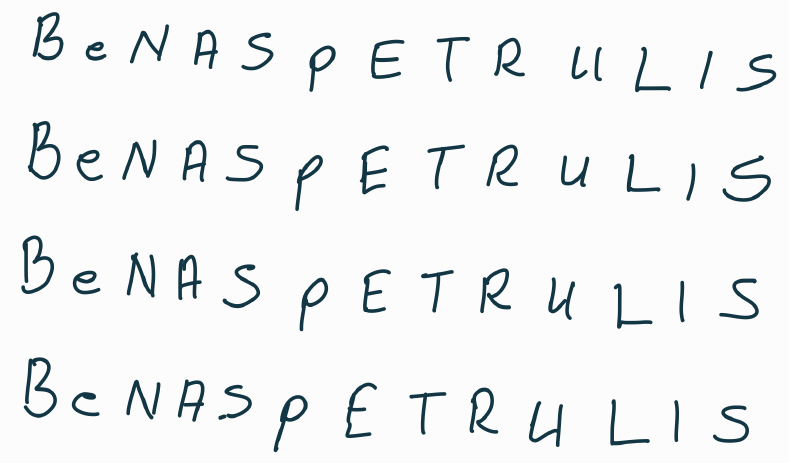 BeNAS pETRULIS
BeNAS pETRULIS
BeNAS pETRULIS
BeNAS pETRULIS